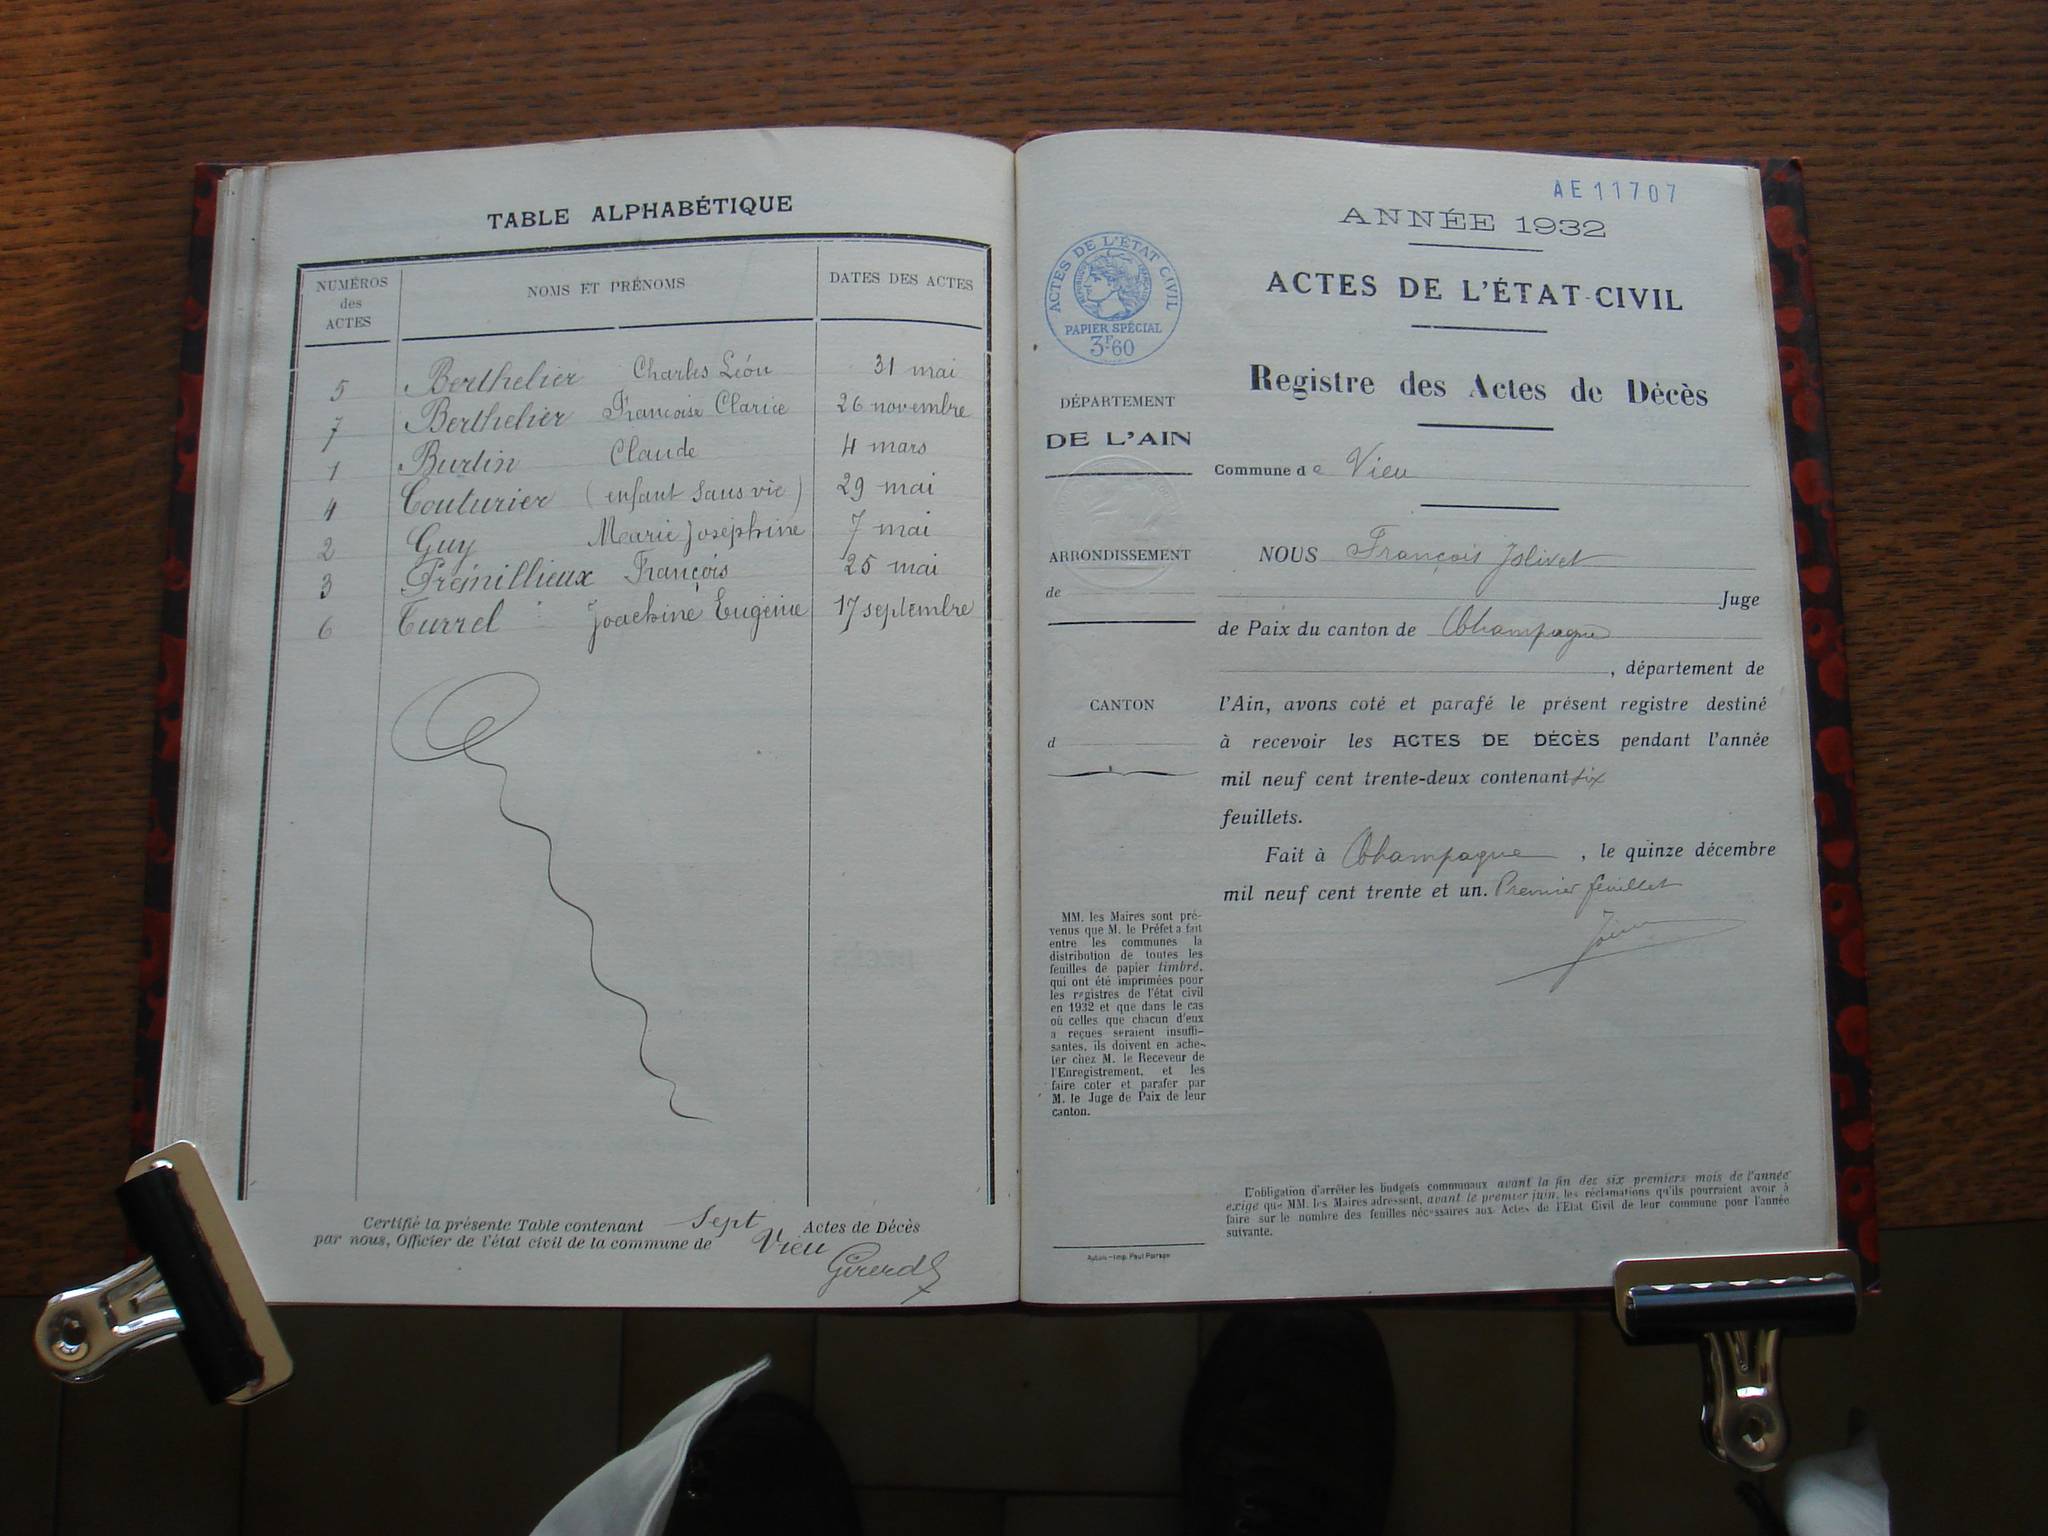 TABLE ALPHABÉTIQUE
NUMÉROS
des
ACTES
NOMS ET PRÉNOMS
DATES DES ACTES
5 Berthelier Charles Léon 31 mai
7 Berthelier Francoise Clarice 26 novembre
1 Burtin Claude 4 mars
4 Couturier (enfant sans vie) 29 mai
2 Guy Marie Joséphine 7 mai
3 Prémillieux François 25 mai
6 Turrel Joachine Eugénie 17 septembre
Certifié la présente Table contenant Sept Actes de Décès
par nous, Officier de l'état civil de la commune de Vieu
Girerd
AE11707
ANNÉE 1932
ACTES DE L'ÉTAT CIVIL
PAPIER SPÉCIAL
3F.60
ACTES DE L'ÉTAT-CIVIL
Registre des Actes de Décès
DÉPARTEMENT
DE L'AIN
Commune de Vieu
ARRONDISSEMENT
de
NOUS François Jolivet
Juge
de Paix du canton de Champagne
, département de
CANTON
d
l'Ain, avons coté et parafé le présent registre destiné
à recevoir les ACTES DE DÉCÈS pendant l'année
mil neuf cent trente-deux contenant six
feuillets.
Fait à Champagne, le quinze décembre
mil neuf cent trente et un. Premier feuillet
MM. les Maires sont pré-
venus que M. le Préfet a fait
entre les communes la
distribution de toutes les
feuilles de papier timbré,
qui ont été imprimées pour
les registres de l'état civil
en 1932 et que dans le cas
où celles que chacun d'eux
a reçues seraient insuffi-
santes, ils doivent en ache-
ter chez M. le Receveur de
l'Enregistrement, et les
faire coter et parafer par
M. le Juge de Paix de leur
canton.
L'obligation d'arrêter les budgets communaux avant la fin des six premiers mois de l'année
exige que MM. les Maires adressent, avant le premier juin, les réclamations qu'ils pourraient avoir à
faire sur le nombre des feuilles nécessaires aux Actes de l'Etat Civil de leur commune pour l'année
suivante.
Imp. Paul